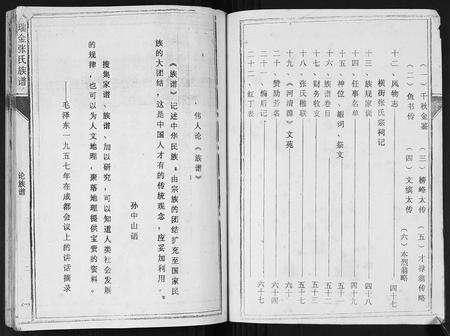 (一)千秋金鉴 (三)桥峰太传 (五)才禄翁传略
(二)鱼书传 (四)文槟太传 (六)本烈翁略
十二、风物志 四十七
横街张氏宗祠记
十三、族规家训 四十八
十四、任事名单 四十九
十五、神位、赧词、祭文 五十一
十六、族谱卷目 五十二
十七、财务收支 五十三
十八、张氏楹联 五十五
十九、《河清源》文苑
二十、赞助芳名
二十一、编后记 六十七
二十二、红丁表 六十七
瑞金张氏族谱
论族谱
伟人论《族谱》
《族谱》记述中华民族，由宗族的团结扩充至国家民
族的大团结，这是中国人才有的传统观念，应妥加利用。
孙中山语
搜集家谱、族谱、加以研究，可以知道人类社会发展
的规律，也可以为人文地理，聚落地理提供宝贵的资料。
——毛泽东一九五七年在成都会议上的讲话摘录